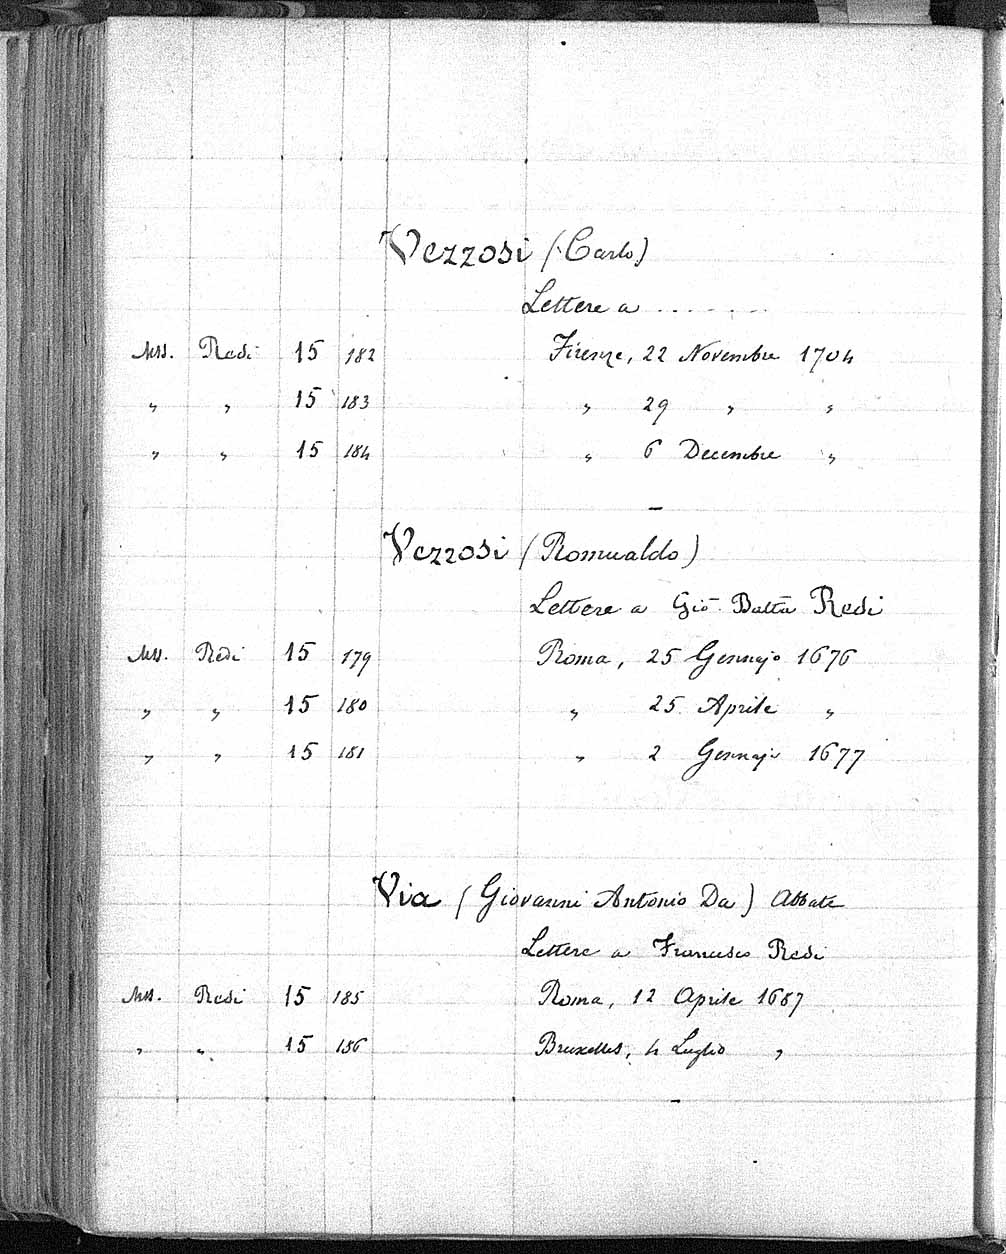 Vezzosi (Carlo)
Lettere a . . . . . . . .
Mss. Redi 15 182 Firenze, 22 Novembre 1704
„ „ 15 183 „ 29 „ „
„ „ 15 184 „ 6 Decembre „
Vezzosi (Romualdo)
Lettere a Gio. Batta Redi
Mss. Redi 15 179 Roma, 25 Gennajo 1676
„ „ 15 180 „ 25 Aprile „
„ „ 15 181 „ 2 Gennajo 1677
Via (Giovanni Antonio Da) Abbate
Lettere a Francesco Redi
Mss. Redi 15 185 Roma, 12 Aprile 1687
„ „ 15 186 Bruxelles, 4 Luglio „